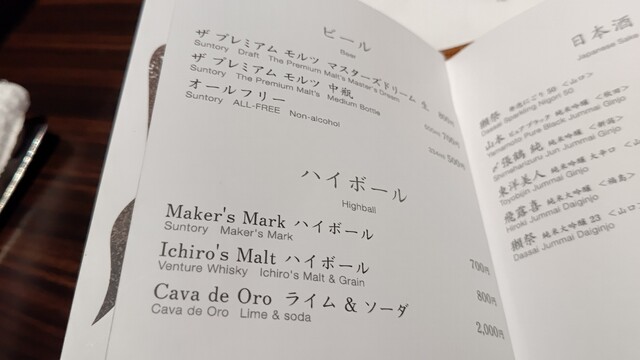 ビール
Beer
ザ プレミアム モルツ マスターズドリーム 生 800円
Suntory Draft The Premium Malt's Master's Dream
ザ プレミアム モルツ 中瓶 700円
Suntory The Premium Malt's Medium Bottle
オールフリー 500円
Suntory ALL-FREE Non-alcohol
ハイボール
Highball
Maker's Mark ハイボール 700円
Suntory Maker's Mark
Ichiro's Malt ハイボール 800円
Venture Whisky Ichiro's Malt & Grain
Cava de Oro ライム & ソーダ 2,000円
Cava de Oro Lime & soda
日本酒
Japanese Sake
獺祭 発泡にごり 50 <山口>
Dassai Sparkling Nigori 50
山本 ピュアブラック 純米吟醸 <秋田>
Yamamoto Pure Black Junmai Ginjo
〆張鶴 純 純米吟醸 <新潟>
Shimeharizuru Jun Junmai Ginjo
東洋美人 純米吟醸 大辛口 <山
Toyobijin Junmai Ginjo
飛露喜 純米大吟醸 <福島>
Hiroki Junmai Daiginjo
獺祭 純米大吟醸 23 <山口
Dassai Junmai Daiginjo